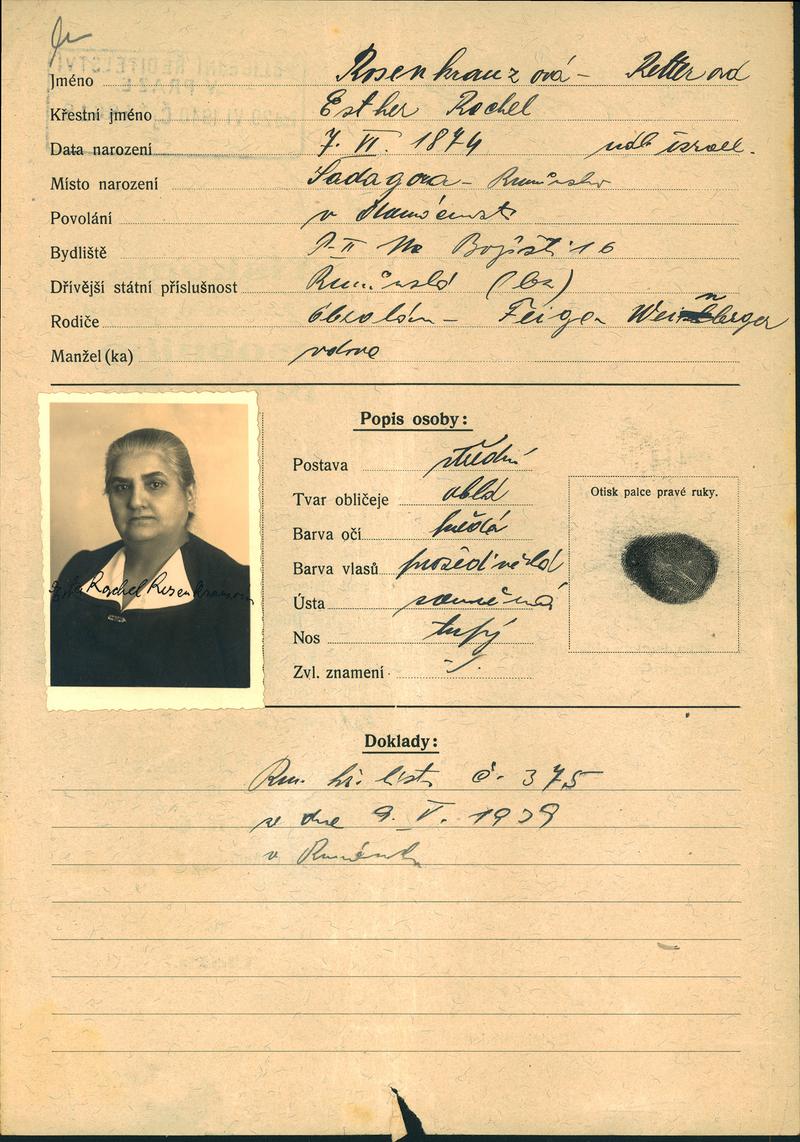 Jméno Rosenkranzová - Retterová
Křestní jméno Esther Rochel
Data narození 7. VI. 1874 náb. israel.
Místo narození Sadagora - Rumunsko
Povolání v domácnosti
Bydliště P-II Na Bojišti 16
Dřívější státní příslušnost Rumunská
Rodiče - Feiga Weinberger
Manžel (ka) vdova
Popis osoby:
Postava střední
Tvar obličeje oblá
Otisk palce pravé ruky.
Barva očí hnědá
Barva vlasů prošedivělá
Ústa souměrná
Nos tupý
Rochel Rosenkranzová
Zvl. znamení
Doklady:
Rum. list č. 375
ze dne 9. V. 1939
v